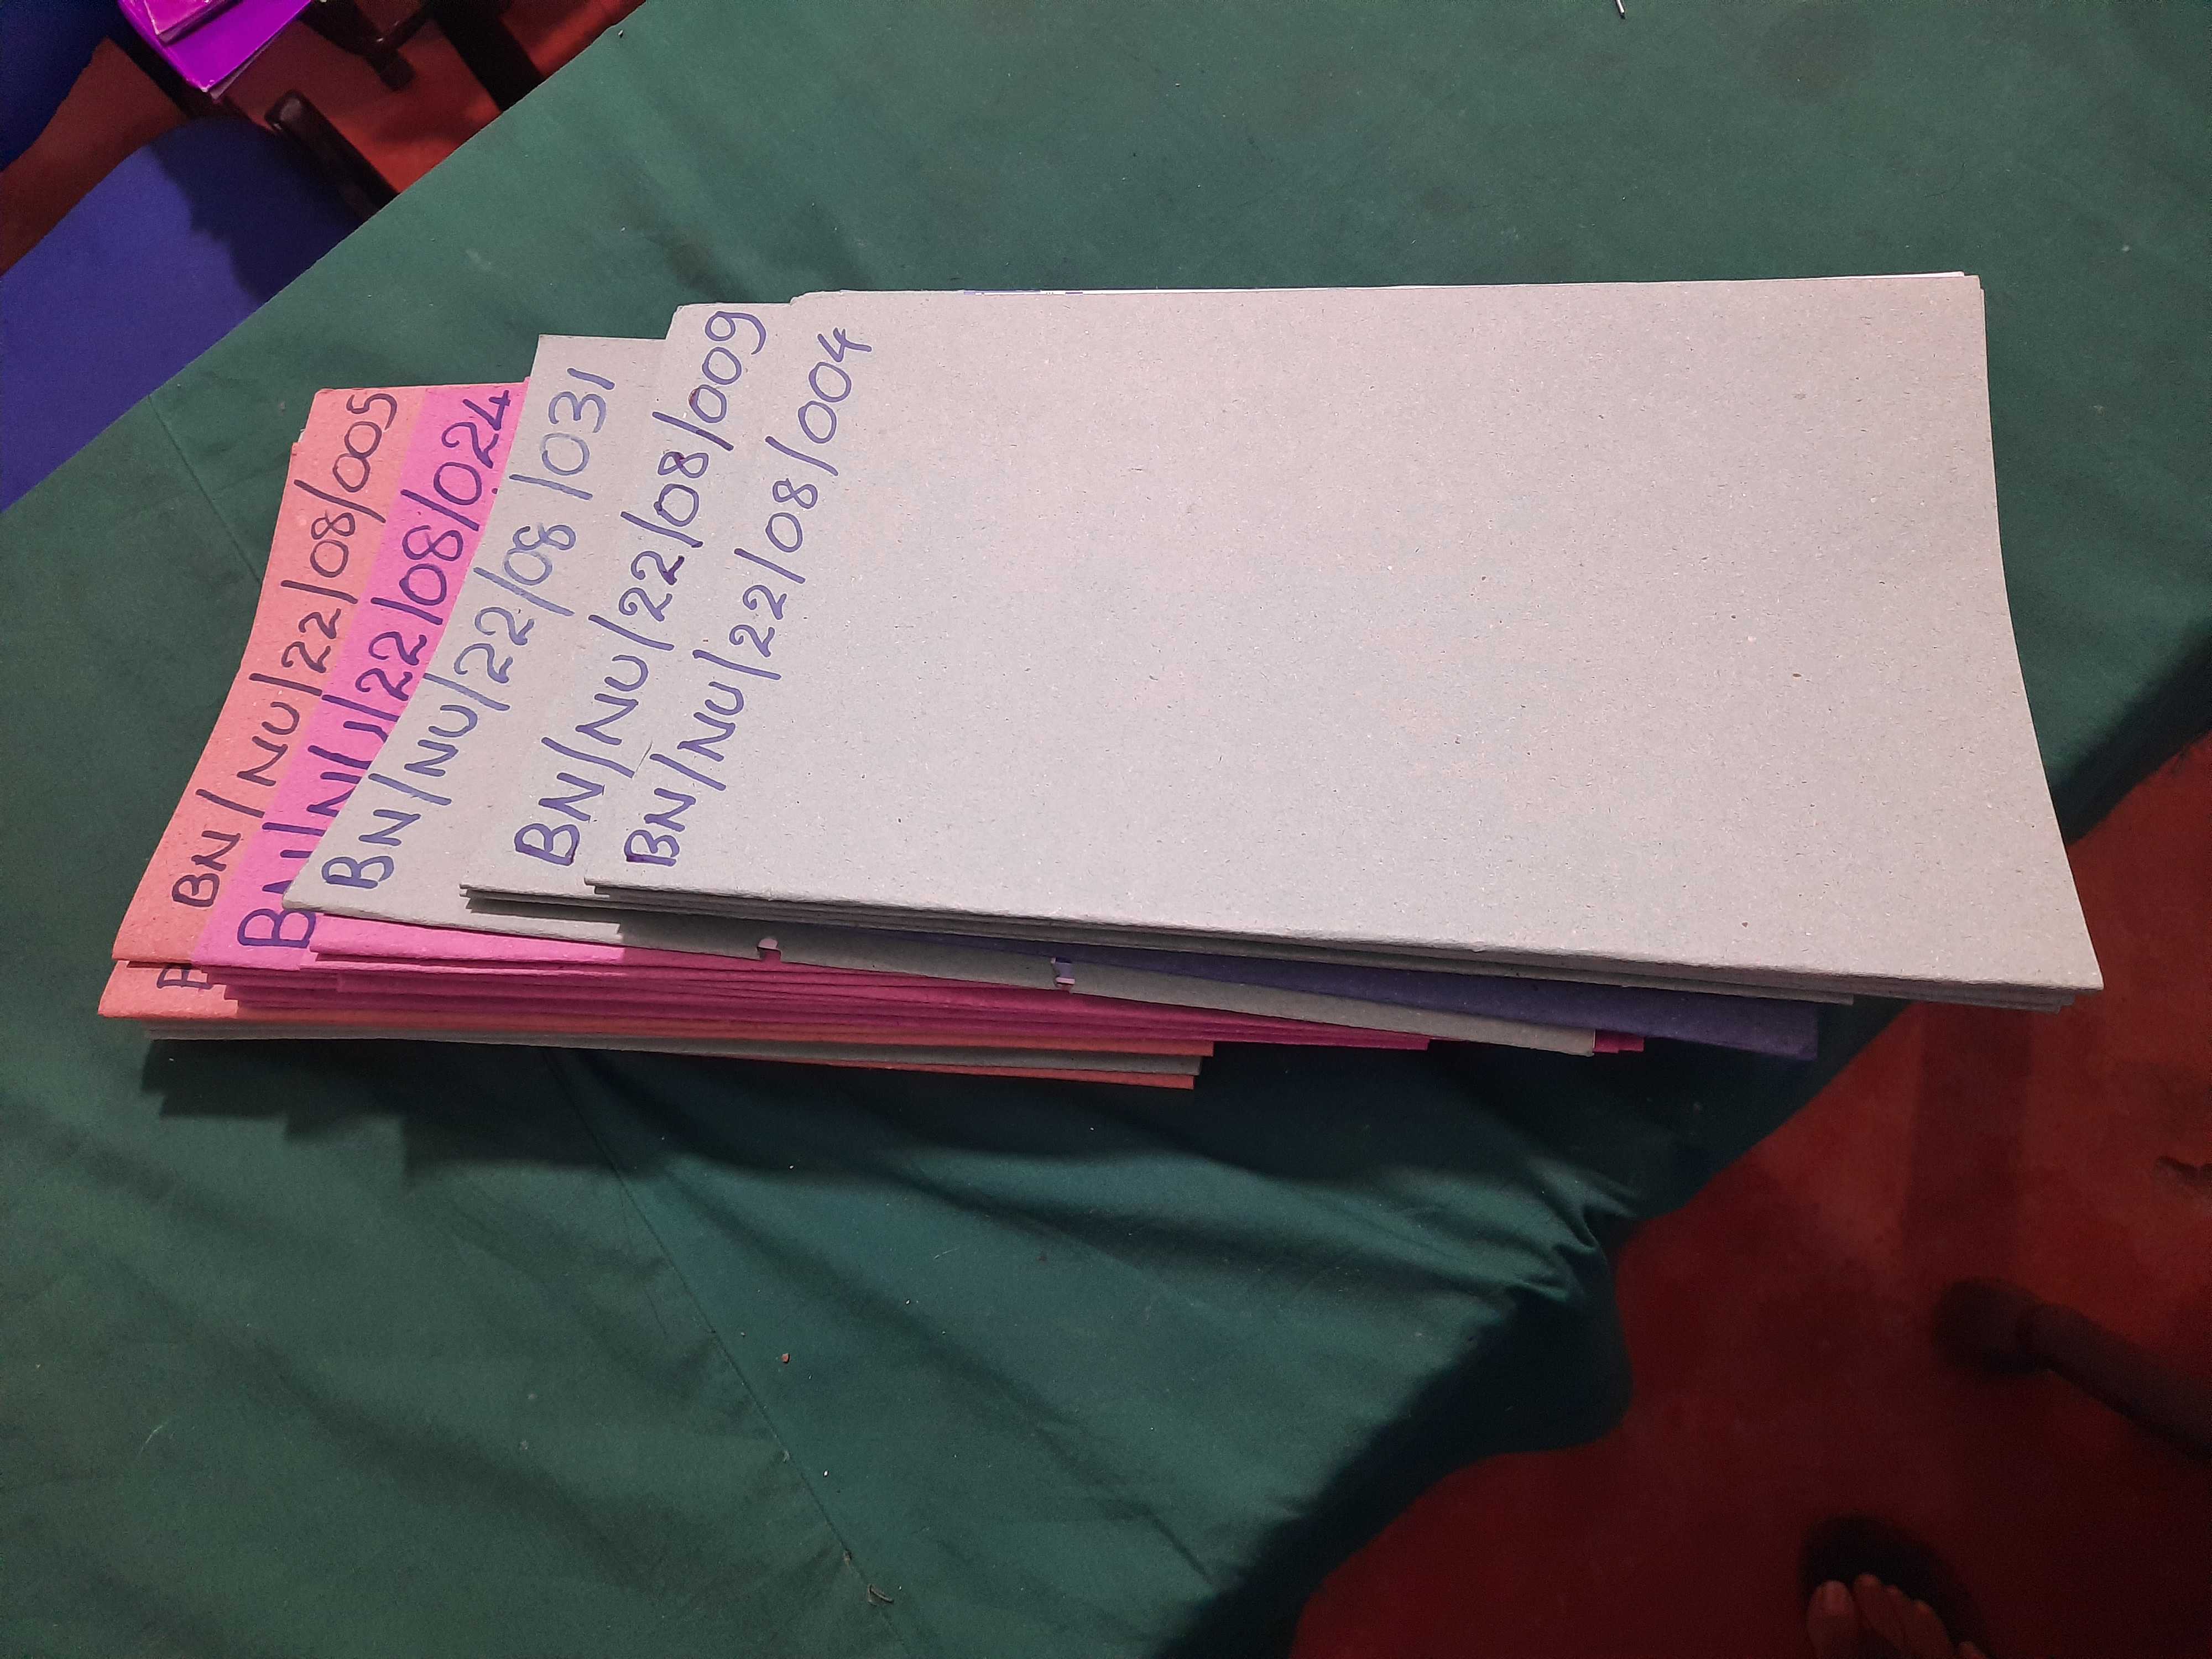 BN/NU/22/08/005
BN/NU/22/08/024
BN/NU/22/08/031
BN/NU/22/08/009
BN/NU/22/08/004